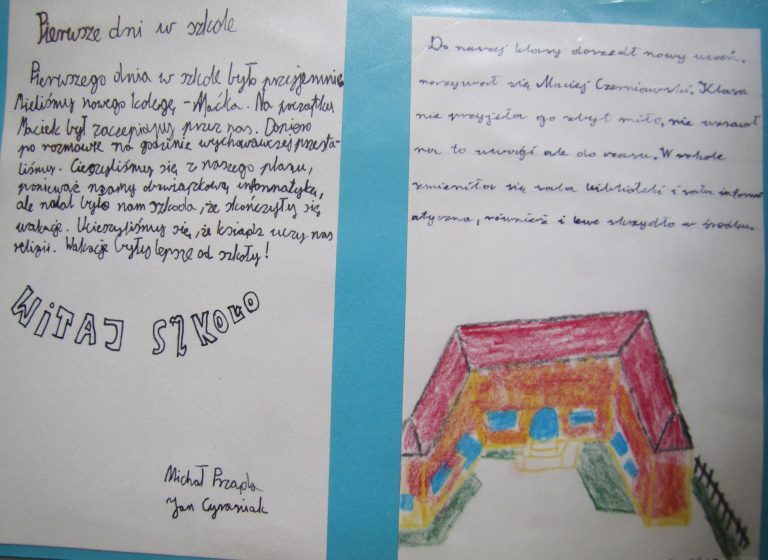 Pierwsze dni w szkole
Pierwszego dnia w szkole było przyjemnie
Mieliśmy nowego kolegę - Maćka. Na początku
Maciek był zaczepiany przez nas. Dopiero
po rozmowie na godzinie wychowawczej przesta-
liśmy. Cieszyliśmy się z naszego planu,
ponieważ mamy dziwiątkową informatykę,
ale nadal było nam szkoda, że skończyły się
wakacje. Ucieszyliśmy się, że ksiądz uczy nas
religii. Wakacje były lepsze od szkoły!
WITAJ SZKOŁO
Michał
Jan
Do naszej klasy doszedł nowy uczeń.
nazywał się Maciej Czerniawski. Klasa
nie przyjęła go zbyt miło, nie wzracał
na to uwagi ale do czasu. W szkole
zmieniła się sala biblioteki i sala inform
atyczna, również i lewe skrzydło w środku.